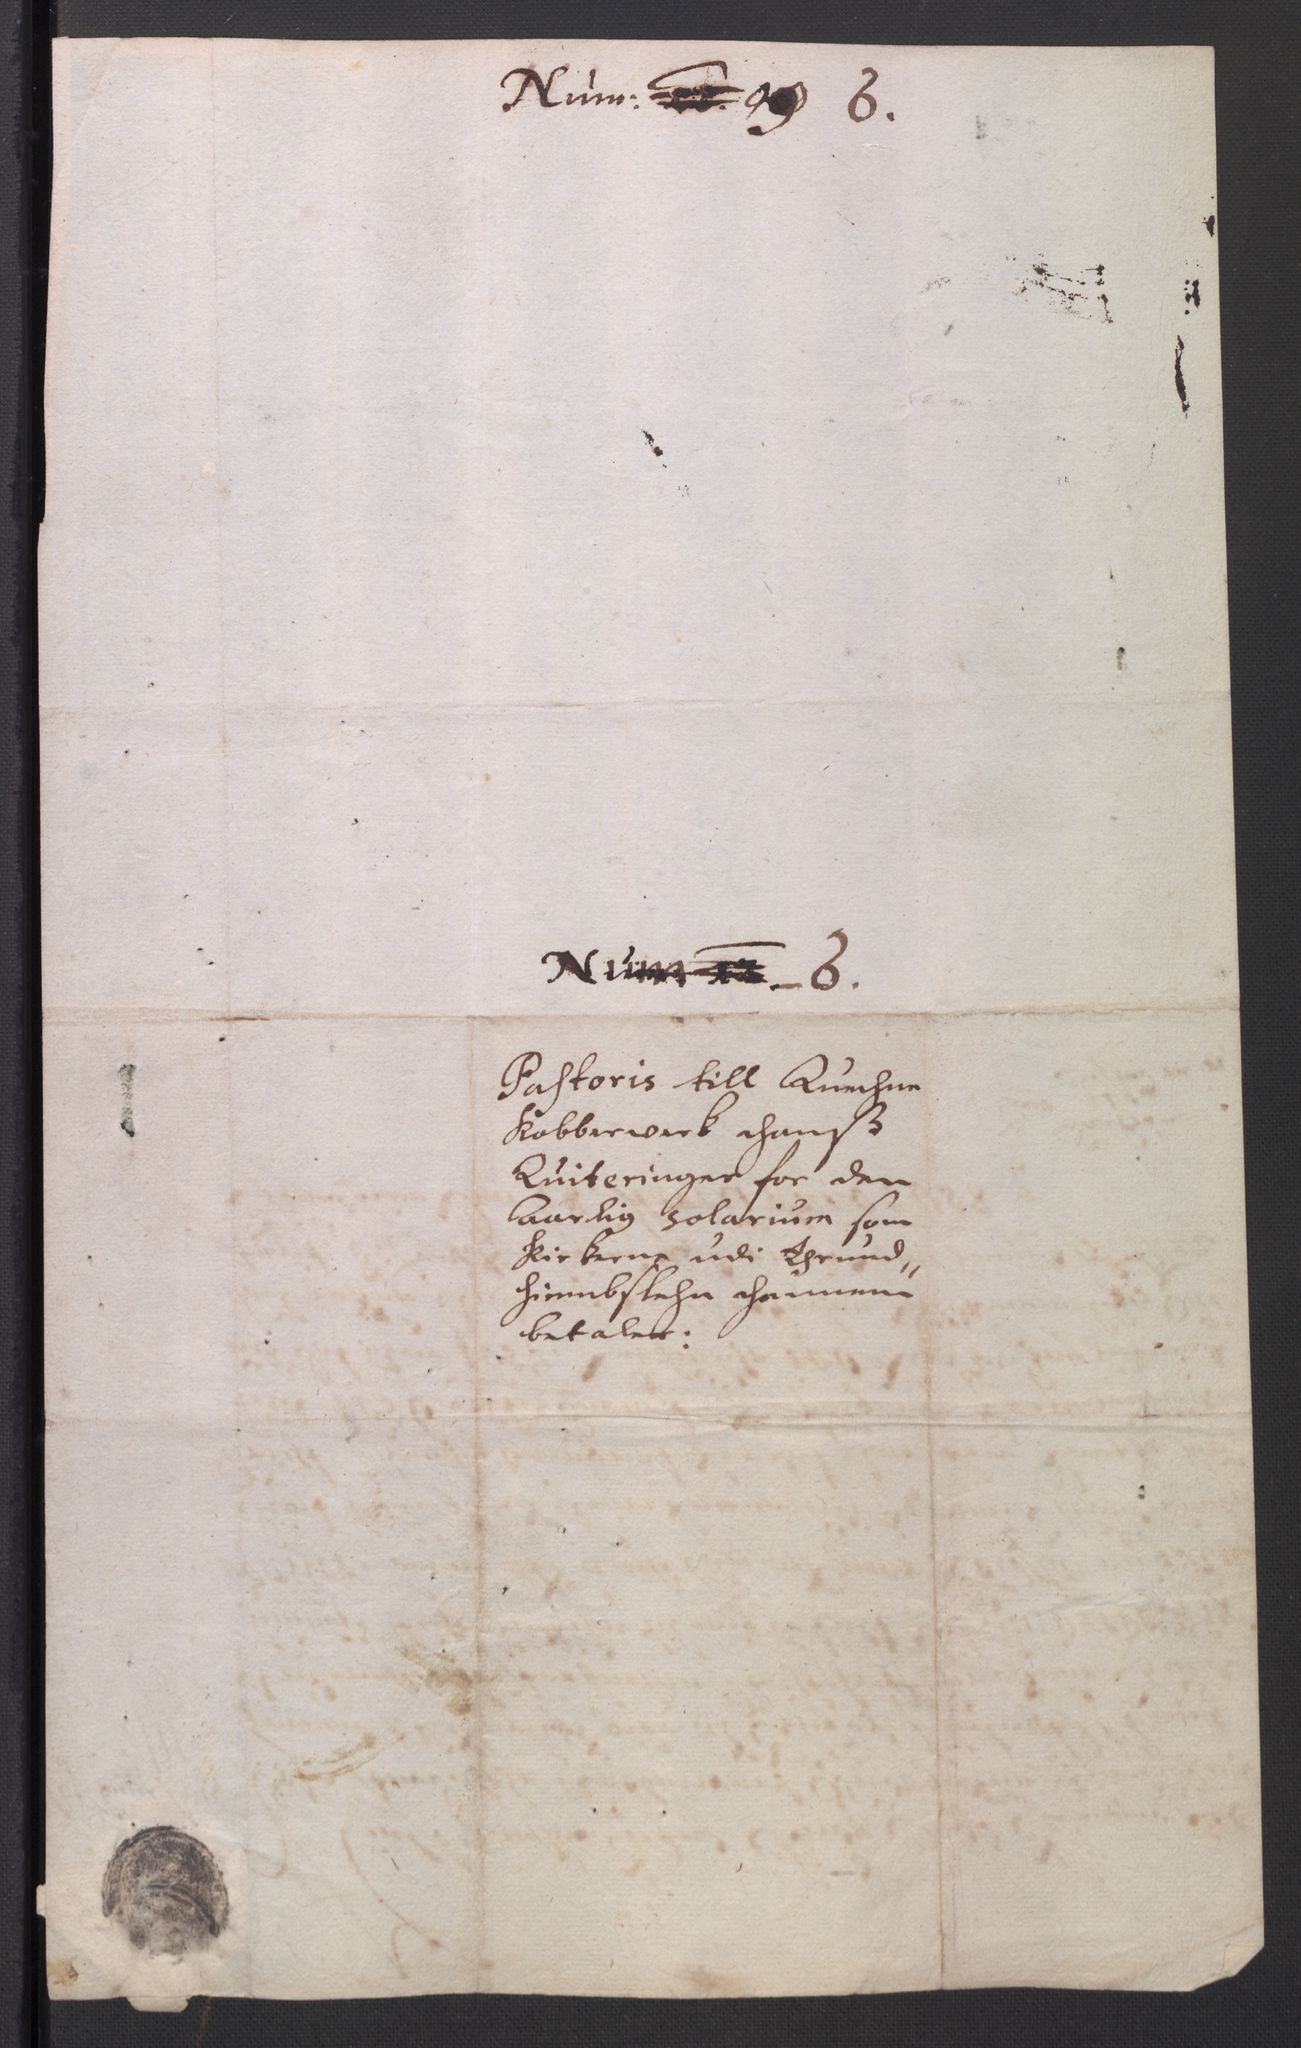 Num: 6.
Num 6.
Pastoris till Quechne
Kobberverk hanß
Quiteringer for den
Aarlig solarium som
Kirkerne udi Thrund„
hiembslehn hannem
betaler: